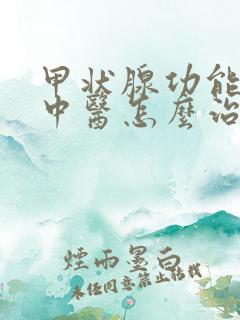 甲状腺功能
中醫怎麼治
煙雨墨白
未任同意禁止转载